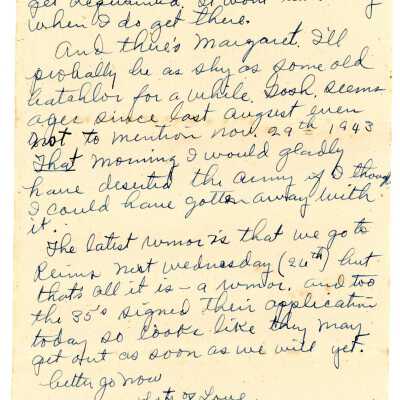 get
when I do get there.
And there's Margaret. I'll
probably be as shy as some old
batchlor for a while. Gosh, seems
ages since last August even
not to mention nov. 29th 1943
That morning I would gladly
have deserted the army if I though
I could have gotten away with
it.
The latest rumor is that we go to
Reims next wednesday (26th) but
thats all it is - a rumor. and too
the 85's signed their application
today so looks like they may
get out as soon as we will yet.
better go now
Lots of Love